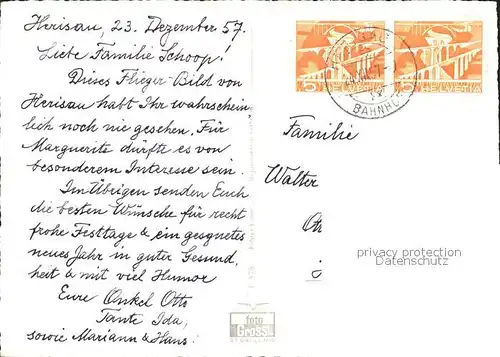 Herisau, 23. Dezember 57.
Liebe Familie Schoop!
Dieses Flieger-Bild von
Herisau habt Ihr wahrschein
lich noch nie gesehen. Für
Marguerite dürfte es von
besonderem Interesse sein.
Im Übrigen senden Euch
die besten Wünsche für recht
frohe Festtage & ein gesegnetes
neues Jahr in guter Gesund,
heit & mit viel Humor
Eure Onkel Otto
Tante Ida,
sowie Mariann & Hans!
HELVETIA
BAHNHO
Familie
Walter
privacy protection
Datenschutz
foto
Gross
ST. GALLEN